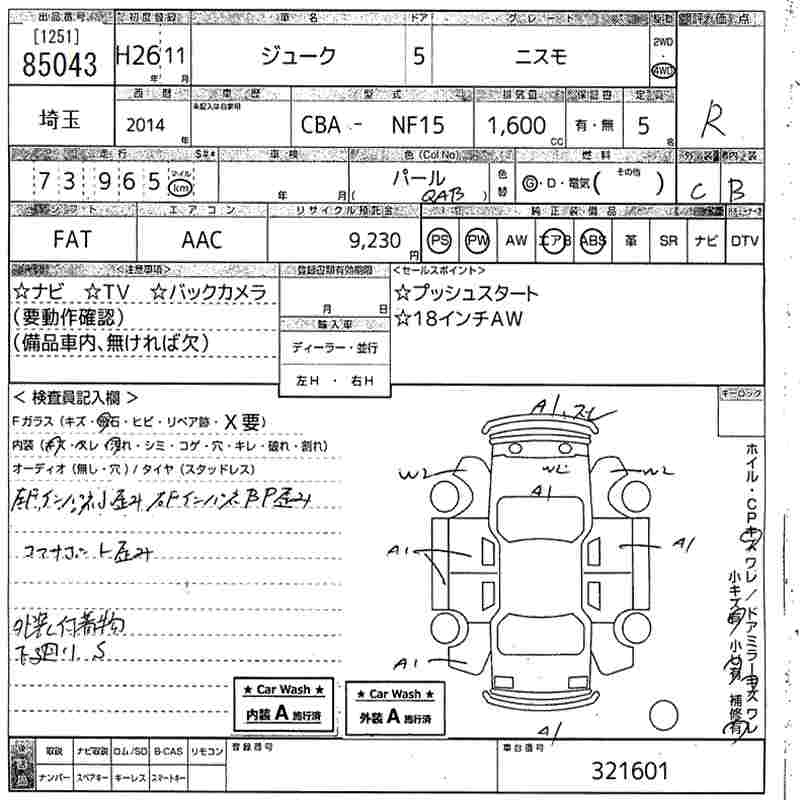 出品番号 初度登録 車名 ドア グレード 駆動 評価点
[1251]
85043 H26 11 ジューク 5 ニスモ 2WD・4WD
年 月
埼玉 西暦 車歴 型式 排気量 保証書 定員 R
未記入は自家用
2014 年 CBA - NF15 1,600 cc 有・無 5 名
走行 車検 色 (Col No) 燃料 外装 内装
73965 マイル km 年 月 パール (QAB) 色替 G・D・電気( その他 ) C B
シフト エアコン リサイクル預託金 純正装備品
FAT AAC 9,230 円 PS PW AW エアB ABS 革 SR ナビ DTV
<注意事項> 登録書類有効期限 <セールスポイント>
☆ナビ ☆TV ☆バックカメラ ☆プッシュスタート
(要動作確認) 月 日 ☆18インチAW
輸入車
(備品車内、無ければ欠) ディーラー・並行
左H ・ 右H
< 検査員記入欄 > キーロック
Fガラス (キズ・飛石・ヒビ・リペア跡・X要)
内装 (キズ・スレ・汚れ・シミ・コゲ・穴・キレ・破れ・割れ)
オーディオ (無し・穴) / タイヤ (スタッドレス)
コアサポート歪み
外装し付着物
下廻り S
A1
W2 W2 A1 W2
A1 A1
A1
A1
ホイル・CPキズ ワレ / ドアミラーキズ ワレ
★ Car Wash ★
内装 A 施行済
★ Car Wash ★
外装 A 施行済
後送品 取説 ナビ取説 ロム/SD B-CAS リモコン 登録番号 車台番号
ナンバー スペアキー キーレス スマートキー 321601